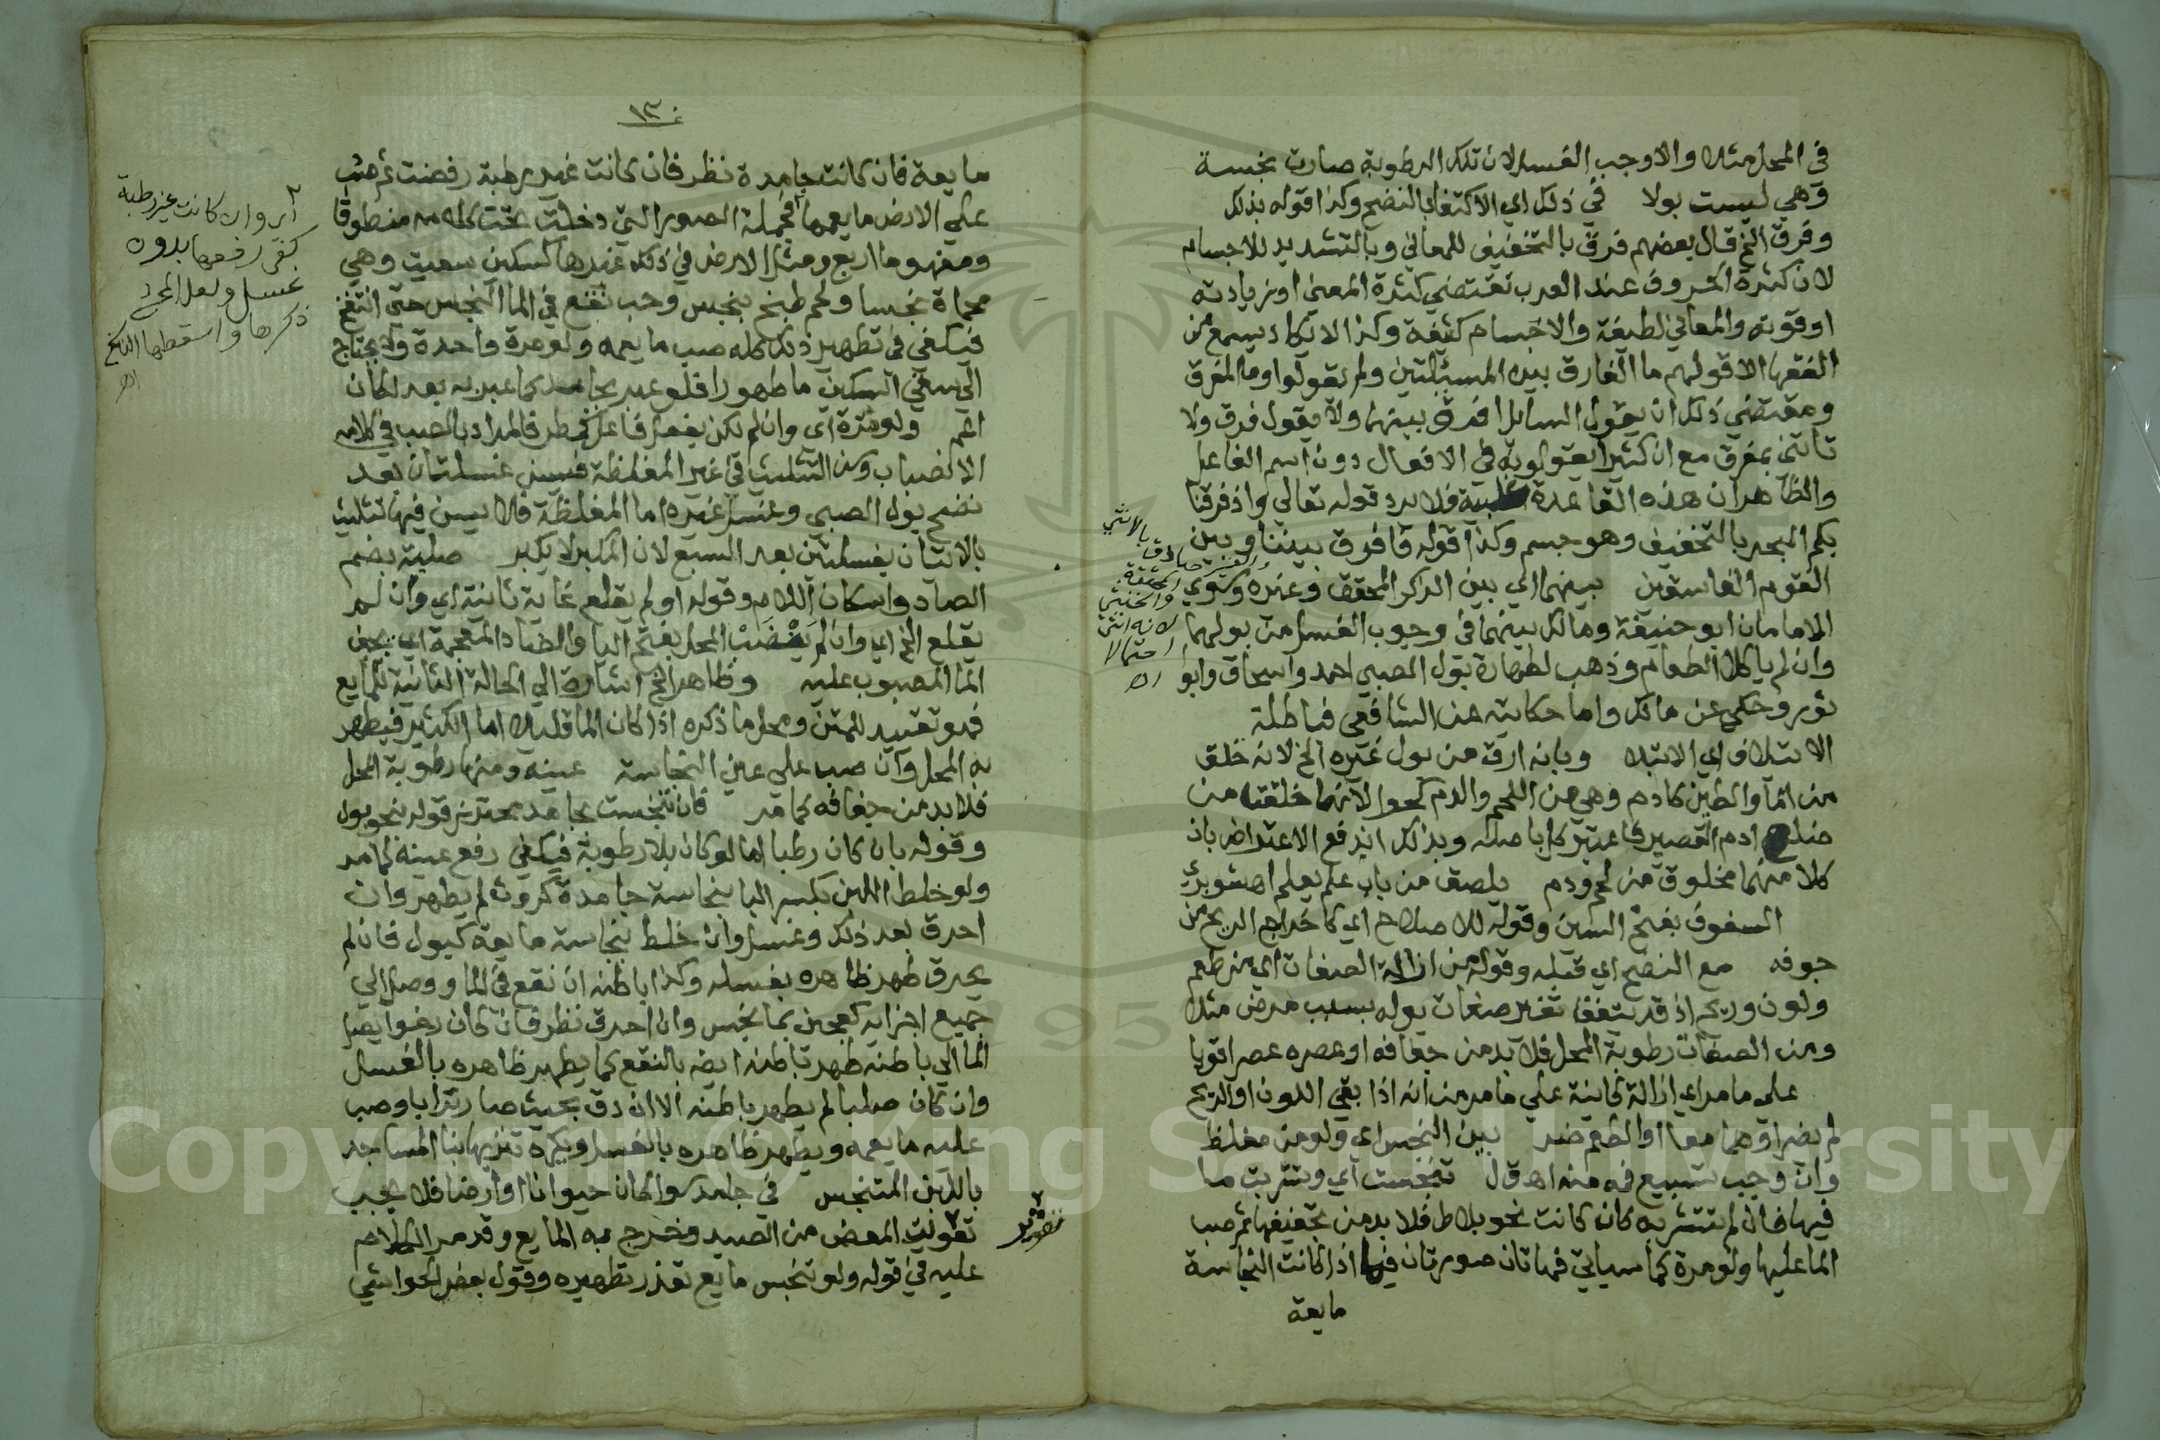 في المحل مثلا والا وجب الغسل لان تلك الرطوبة صارت نجسة
وهي ليست بولا في ذلك اي الاكتفا بالنضح وكذا قوله بذلك
وفرق الخ قال بعضهم فرق بالتخفيف للمعاني وبالتشديد للاجسام
لان كثرة الحروف عند العرب تقتضي كثرة المعنى او زيادته
او قوته والمعاني لطيفة والاجسام كثيفة وكذا لا تكاد يسمع من
الفقها الا قولهم ما الفارق بين المسئلتين ولم يقولوا وما المفرق
ومقتضى ذلك ان يقول السايل افرق بينهما ولا يقول فرق ولا
تاتى بمفرق مع ان كثيرا يقولونه في الافعال دون اسم الفاعل
والظاهر ان هذه القاعدة فلا يرد قوله تعالى واذ فرقنا
بكم البحر بالتخفيف وهو جسم وكذا قوله فافرق بيننا وبين
القوم الفاسقين بينهما اي بين الذكر المحقق وغيره وسوى
الامامان ابو حنيفة ومالك بينهما في وجوب الغسل من بولهما
وان لم ياكلا الطعام وذهب لطهارة بول الصبي احمد واسحاق وابو
ثور وحكى عن مالك واما حكايته عن الشافعي فباطلة
الايتلاف اي الابتلا وبانه ارق من بول غيره الخ لانه خلق
من الما والطين كادم وهي من اللحم والدم كحوا لانها خلقت من
ضلع ادم القصير فاعتبر كل باصله وبذلك اندفع الاعتراض بان
كلا منهما مخلوق من لحم ودم يلصق من باب علم يعلم اه شوبري
السفوف بفتح السين وقوله للاصلاح اي كاخراج الريح من
جوفه مع النضح اي قبله وقوله من ازالة الصفات اي من طعم
ولون وريح اذ قد يتفق تغير صفات بوله بسبب مرض مثلا
ومن الصفات رطوبة المحل فلا بد من جفافه او عصره عصرا قويا
على ما مر اي ازالة كاينة على ما مر من انه اذا بقي اللون او الريح
لم يضر او هما معا او الطعم ضر بين النجس اي ولو من مغلظ
وان وجب تسبيع فمه منه اه ق ل تنجست اي وتشربت ما
فيها فان لم تتشربه كان كانت نحو بلاط فلا بد من تجفيفها ثم صب
الما عليها ولو مرة كما سياتي فهاتان صورتان فيما اذا كانت النجاسة
مايعة
بالانثى
والخنثى
لانه انثى
احتمالا
اه
١٣
مايعة فان كانت جامدة نظر فان كانت غير رطبة رفعت ثم صب
على الارض ما يعمها فجملة الصور التي دخلت تحت كلامه منطوقا
ومفهوما اربع ومثل الارض في ذلك غيرها كسكين سقيت وهي
محماة نجسا ولحم طبخ بنجس وحب نقع في الما النجس حتى انتفخ
فيكفي في تطهير ذلك كله صب ما يعمه ولو مرة واحدة ولا يحتاج
الى سقي السكين ما طهورا فلو عبر بجامد كما عبر به بعد لكان
اعم ولو مرة اي وان لم يكن بفعل فاعل كمطر فالمراد بالصب في كلامه
الانصباب وسن التثليث في غير المغلظة فيسن غسلتان بعد
نضح بول الصبي وغسل غيره اما المغلظة فلا يسن فيها تثليث
بالاتيان بغسلتين بعد السبع لان المكبر لا يكبر صلبة بضم
الصاد واسكان اللام وقوله او لم يقلع غاية ثانية اي وان لم
يقلع الخ اي وان لم ينضب المحل بفتح اليا والضاد المعجمة اي يجف
الما المصبوب عليه وظاهر الخ اشارة الى الحالة الثانية للمايع
فهو تقييد للمتن ومحل ما ذكره اذا كان الما قليلا اما الكثير فيطهر
به المحل وان صب على عين النجاسة عينه ومنها رطوبة المحل
فلا بد من جفافه كما مر فان تنجست بجامد محترز قوله بنحو بول
وقوله بان كان رطبا اما لو كان بلا رطوبة فيكفي رفع عينه كما مر
ولو خلط اللبن بكسر البا بنجاسة جامدة كروث لم يطهر وان
احرق بعد ذلك وغسل وان خلط بنجاسة مايعة كبول فان لم
يحرق طهر ظاهره بغسله وكذا باطنه ان نقع في الما ووصل الى
جميع اجزايه كعجين بما نجس وان احرق نظر فان كان رخوا يصل
الما الى باطنه طهر باطنه ايضا بالنقع كما يطهر ظاهره بالغسل
وان كان صلبا لم يطهر باطنه الا ان دق بحيث صار ترابا وصب
عليه ما يعمه ويطهر ظاهره بالغسل ويكره تنزيها بنا المساجد
باللبن المتنجس في جامد سوا كان حيوانا او ارضا فلا يجب
تقوير المعض من الصيد وخرج به المايع وقد مر الكلام
عليه في قوله ولو تنجس مايع تعذر تطهيره وقول بعض الحواشي
اي وان كانت غير رطبة
كفى رفعها بدون
غسل ولعل المحشي
ذكرها واسقطها الناسخ
اه
Copyright © King Saud University